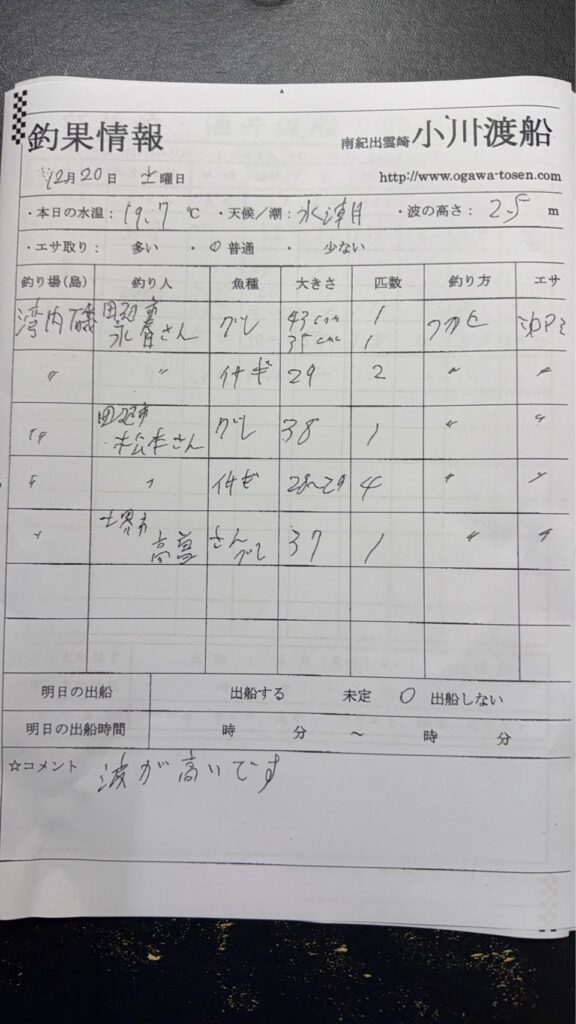 釣果情報
南紀出雲崎 小川渡船
12月20日 土曜日
http://www.ogawa-tosen.com
・本日の水温: 19.7 ℃ ・天候/潮: ・波の高さ: 2.5 m
・エサ取り: 多い ・○普通 ・ 少ない
釣り場(島) 釣り人 魚種 大きさ 匹数 釣り方 エサ
湾内磯 田辺市 永春さん グレ 43cm 1 フカセ
35cm 1
〃 〃 イサギ 29 2 〃 〃
〃 田辺市 松本さん グレ 38 1 〃 〃
〃 〃 イサギ 28~29 4 〃 〃
〃 堺市 さん グレ 37 1 〃 〃
明日の出船 出船する 未定 ○ 出船しない
明日の出船時間 時 分 ~ 時 分
☆コメント 波が高いです